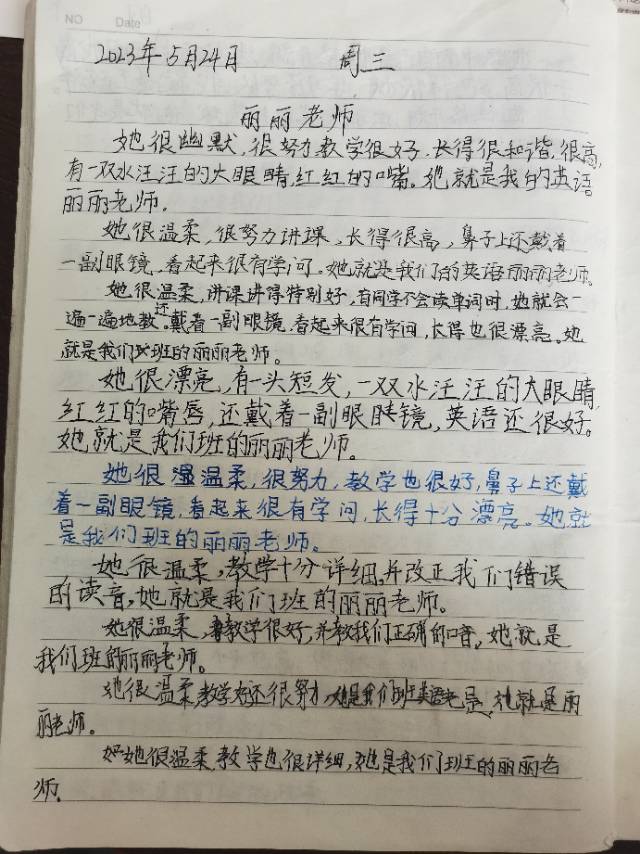 NO Date
2023年5月24日 周三
丽丽老师
她很幽默,很努力教学很好.长得很和谐,很高,
有一双水汪汪的大眼睛,红红的嘴。她就是我的英语
丽丽老师.
她很温柔,很努力讲课,长得很高,鼻子上还戴着
一副眼镜,看起来很有学问.她就是我们的英语丽丽老师.
她很温柔,讲课讲得特别好,有同学不会读单词时,她就会一
遍一遍地教。还戴着一副眼镜.看起来很有学问,长得也很漂亮。她
就是我们班的丽丽老师。
她很漂亮,有一头短发,一双水汪汪的大眼睛,
红红的嘴唇,还戴着一副眼镜,英语还很好。
她就是我们班的丽丽老师。
她很温柔,很努力,教学也很好,鼻子上还戴
着一副眼镜,看起来很有学问,长得十分漂亮。她就
是我们班的丽丽老师。
她很温柔,教学十分详细,并改正我们错误
的读音,她就是我们班的丽丽老师。
她很温柔,教学很好,并教我们正确的口音,她就是
我们班的丽丽老师。
她很温柔,教学好还很努力,她就是丽
丽老师.
她很温柔,教学也很详细,她是我们班的丽丽老
师.